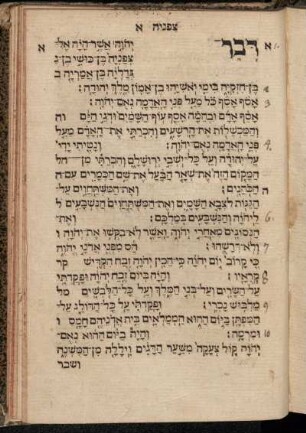 צפניה א
א דבר־ יהוה אשר היה אל־ א
צפניה בן־כושי בן־ג
גדליה בן אמריה ב
בן־חזקיה בימי יאשיהו בן־אמון מלך יהודה׃
אסף אסף כל מעל פני האדמה נאם־יהוה׃
אסף אדם ובהמה אסף עוף־השמים ודגי הים ו
והמכשלות את־הרשעים והכרתי את־האדם מעל
פני האדמה נאם־יהוה׃ ונטיתי ידי
על־יהודה ועל כל־יושבי ירושלם והכרתי מן־
המקום הזה את־שאר הבעל את־שם הכמרים עם־ה
ה הכהנים׃ ואת־המשתחוים על־
הגגות לצבא השמים ואת־המשתחוים הנשבעים ל
ליהוה והנשבעים במלכם׃ ואת־
הנסוגים מאחרי יהוה ואשר לא־בקשו את־יהוה ו
ולא דרשהו׃ הס מפני אדני יהוה
כי קרוב יום יהוה כי־הכין יהוה זבח הקדיש קר
קראיו׃ והיה ביום זבח יהוה ופקדתי
על־השרים ועל־בני המלך ועל כל־הלבשים מל
מלבוש נכרי׃ ופקדתי על כל־הדולג על־
המפתן ביום ההוא הממלאים בית אדניהם חמס ו
ומרמה׃ והיה ביום ההוא נאם־
יהוה קול צעקה משער הדגים ויללה מן־המשנה
ושבר